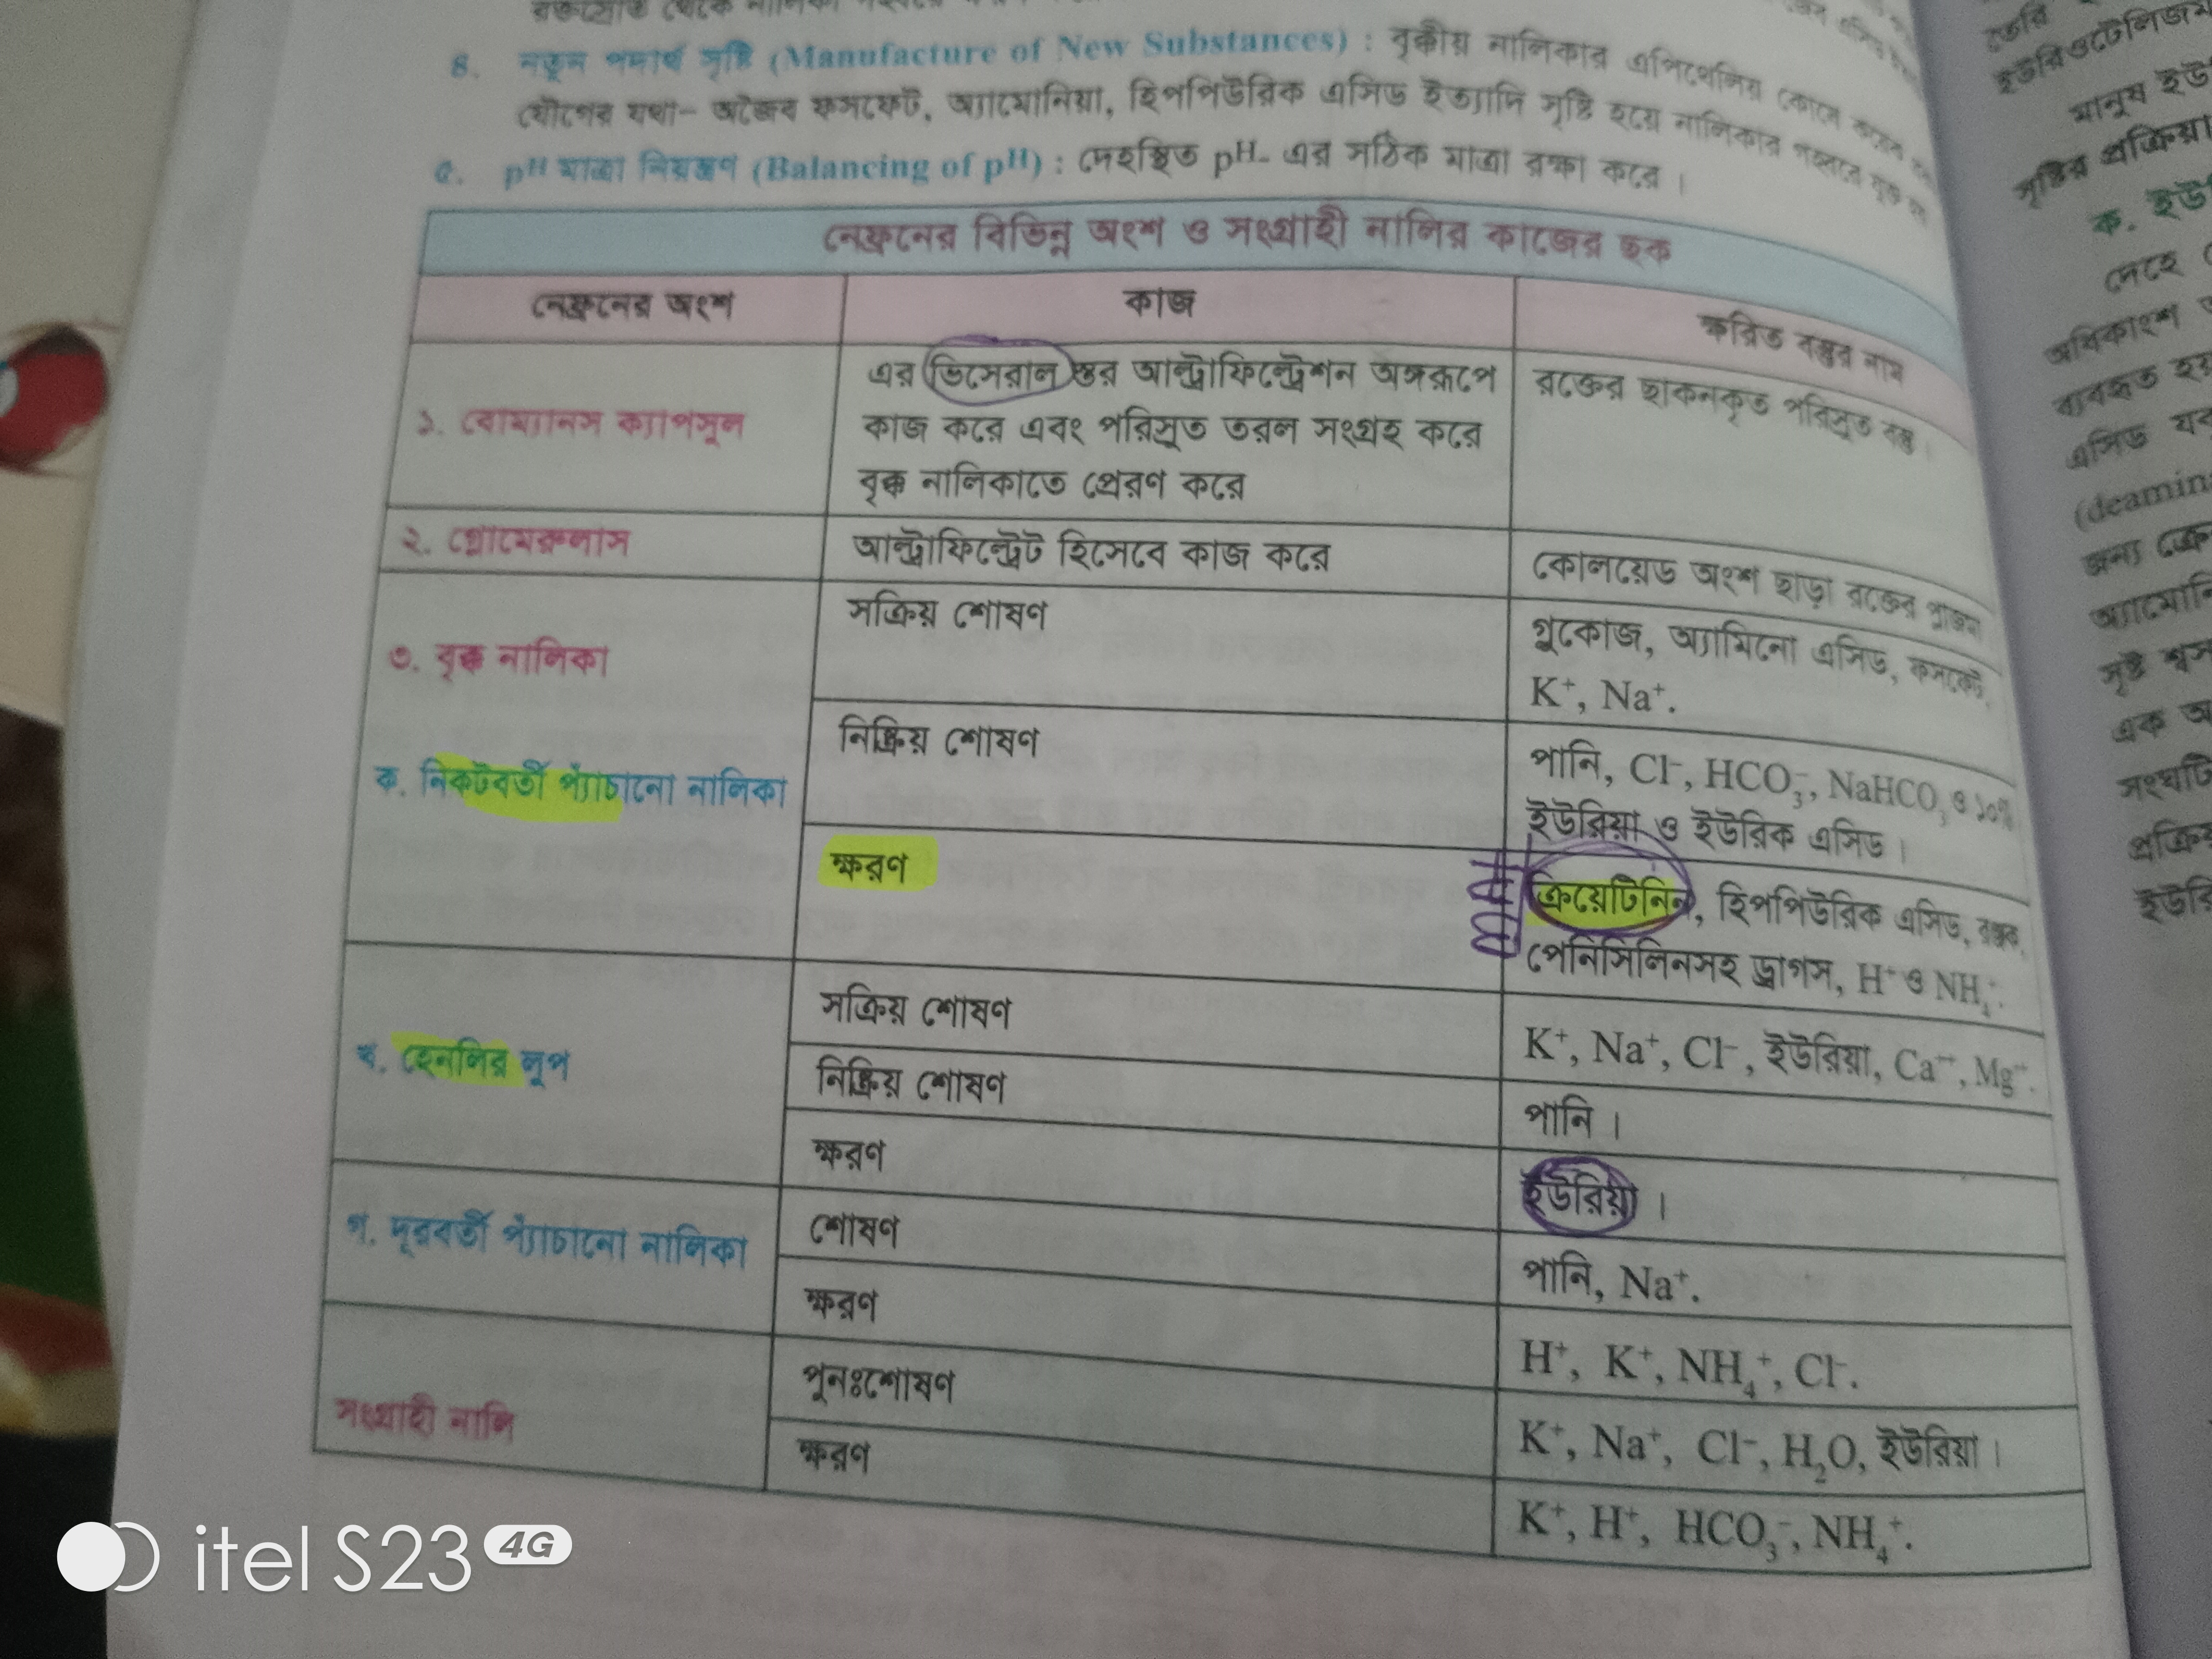 ৪. নতুন পদার্থ সৃষ্টি (Manufacture of New Substances) : বৃক্কীয় নালিকার এপিথেলিয় কোষে কয়েক
যৌগের যথা- অজৈব ফসফেট, অ্যামোনিয়া, হিপপিউরিক এসিড ইত্যাদি সৃষ্টি হয়ে নালিকার গহ্বরে যুক্ত হয়
৫. pH মাত্রা নিয়ন্ত্রণ (Balancing of pH) : দেহস্থিত pH- এর সঠিক মাত্রা রক্ষা করে।
নেফ্রনের বিভিন্ন অংশ ও সংগ্রাহী নালির কাজের ছক
নেফ্রনের অংশ কাজ ক্ষরিত বস্তুর নাম
১. বোম্যানস ক্যাপসুল
এর ভিসেরাল স্তর আল্ট্রাফিল্ট্রেশন অঙ্গরূপে
কাজ করে এবং পরিস্রুত তরল সংগ্রহ করে
বৃক্ক নালিকাতে প্রেরণ করে
রক্তের ছাকনকৃত পরিস্রুত বস্তু।
২. গ্লোমেরুলাস
আল্ট্রাফিল্ট্রেট হিসেবে কাজ করে
কোলয়েড অংশ ছাড়া রক্তের প্লাজমা
৩. বৃক্ক নালিকা
ক. নিকটবর্তী প্যাঁচানো নালিকা
সক্রিয় শোষণ
গ্লুকোজ, অ্যামিনো এসিড, ফসফেট,
K⁺, Na⁺.
নিষ্ক্রিয় শোষণ
পানি, Cl⁻, HCO₃⁻, NaHCO₃ ও ১০%
ইউরিয়া ও ইউরিক এসিড।
ক্ষরণ
ক্রিয়েটিনিন, হিপপিউরিক এসিড, রঞ্জক,
পেনিসিলিনসহ ড্রাগস, H⁺ ও NH₄⁺.
খ. হেনলির লুপ
সক্রিয় শোষণ
K⁺, Na⁺, Cl⁻, ইউরিয়া, Ca⁺⁺, Mg⁺⁺.
নিষ্ক্রিয় শোষণ
পানি।
ক্ষরণ
ইউরিয়া।
গ. দূরবর্তী প্যাঁচানো নালিকা
শোষণ
পানি, Na⁺.
ক্ষরণ
H⁺, K⁺, NH₄⁺, Cl⁻.
সংগ্রাহী নালি
পুনঃশোষণ
K⁺, Na⁺, Cl⁻, H₂O, ইউরিয়া।
ক্ষরণ
K⁺, H⁺, HCO₃⁻, NH₄⁺.
তৈরি
ইউরিওটেলিজম
মানুষ ইউ
সৃষ্টির প্রক্রিয়া
ক. ইউ
দেহে
অধিকাংশ
ব্যবহৃত হয়
এসিড যক
(deamin
জন্য
অ্যামোনি
সৃষ্ট শ্বস
এক অ
সংঘটি
প্রক্রিয়
ইউরি
itel S23 4G